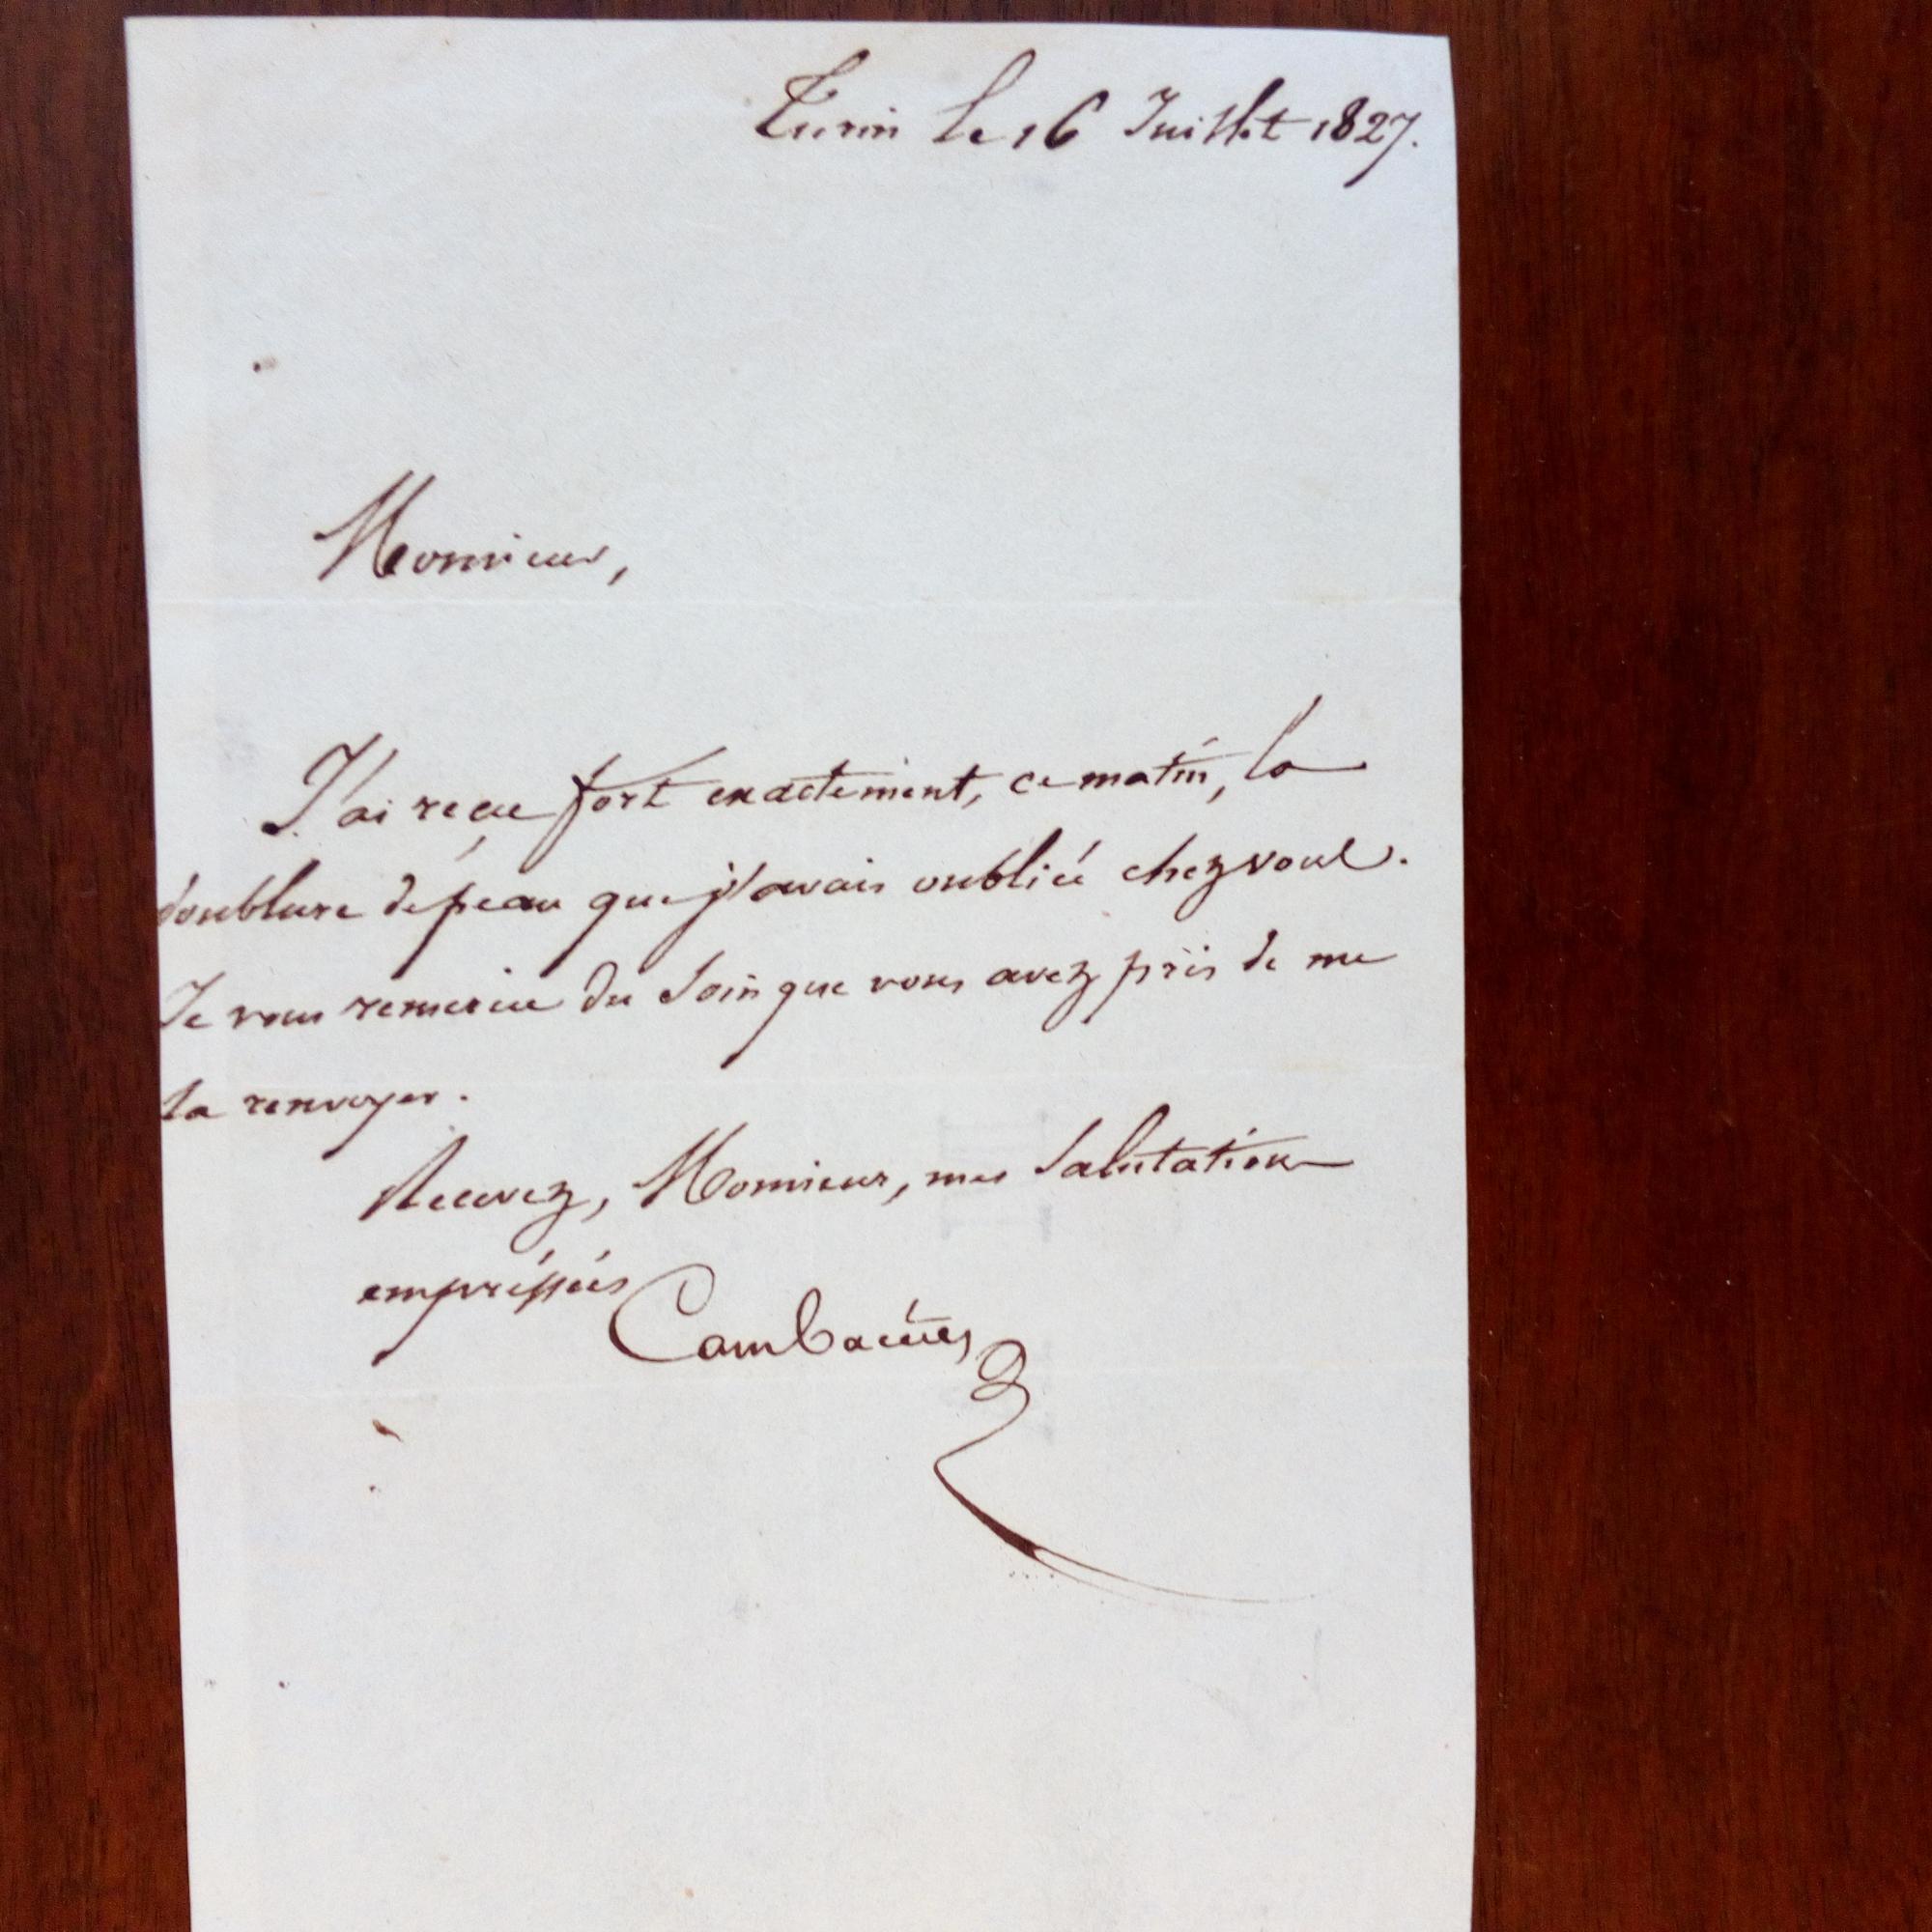 Turin le 16 Juillet 1827.
Monsieur,
J'ai reçu fort exactement, ce matin, la
doublure de peau que j'avais oubliée chez vous.
Je vous remercie du soin que vous avez pris de me
la renvoyer.
Recevez, Monsieur, mes salutations
empréssées
Cambacérès